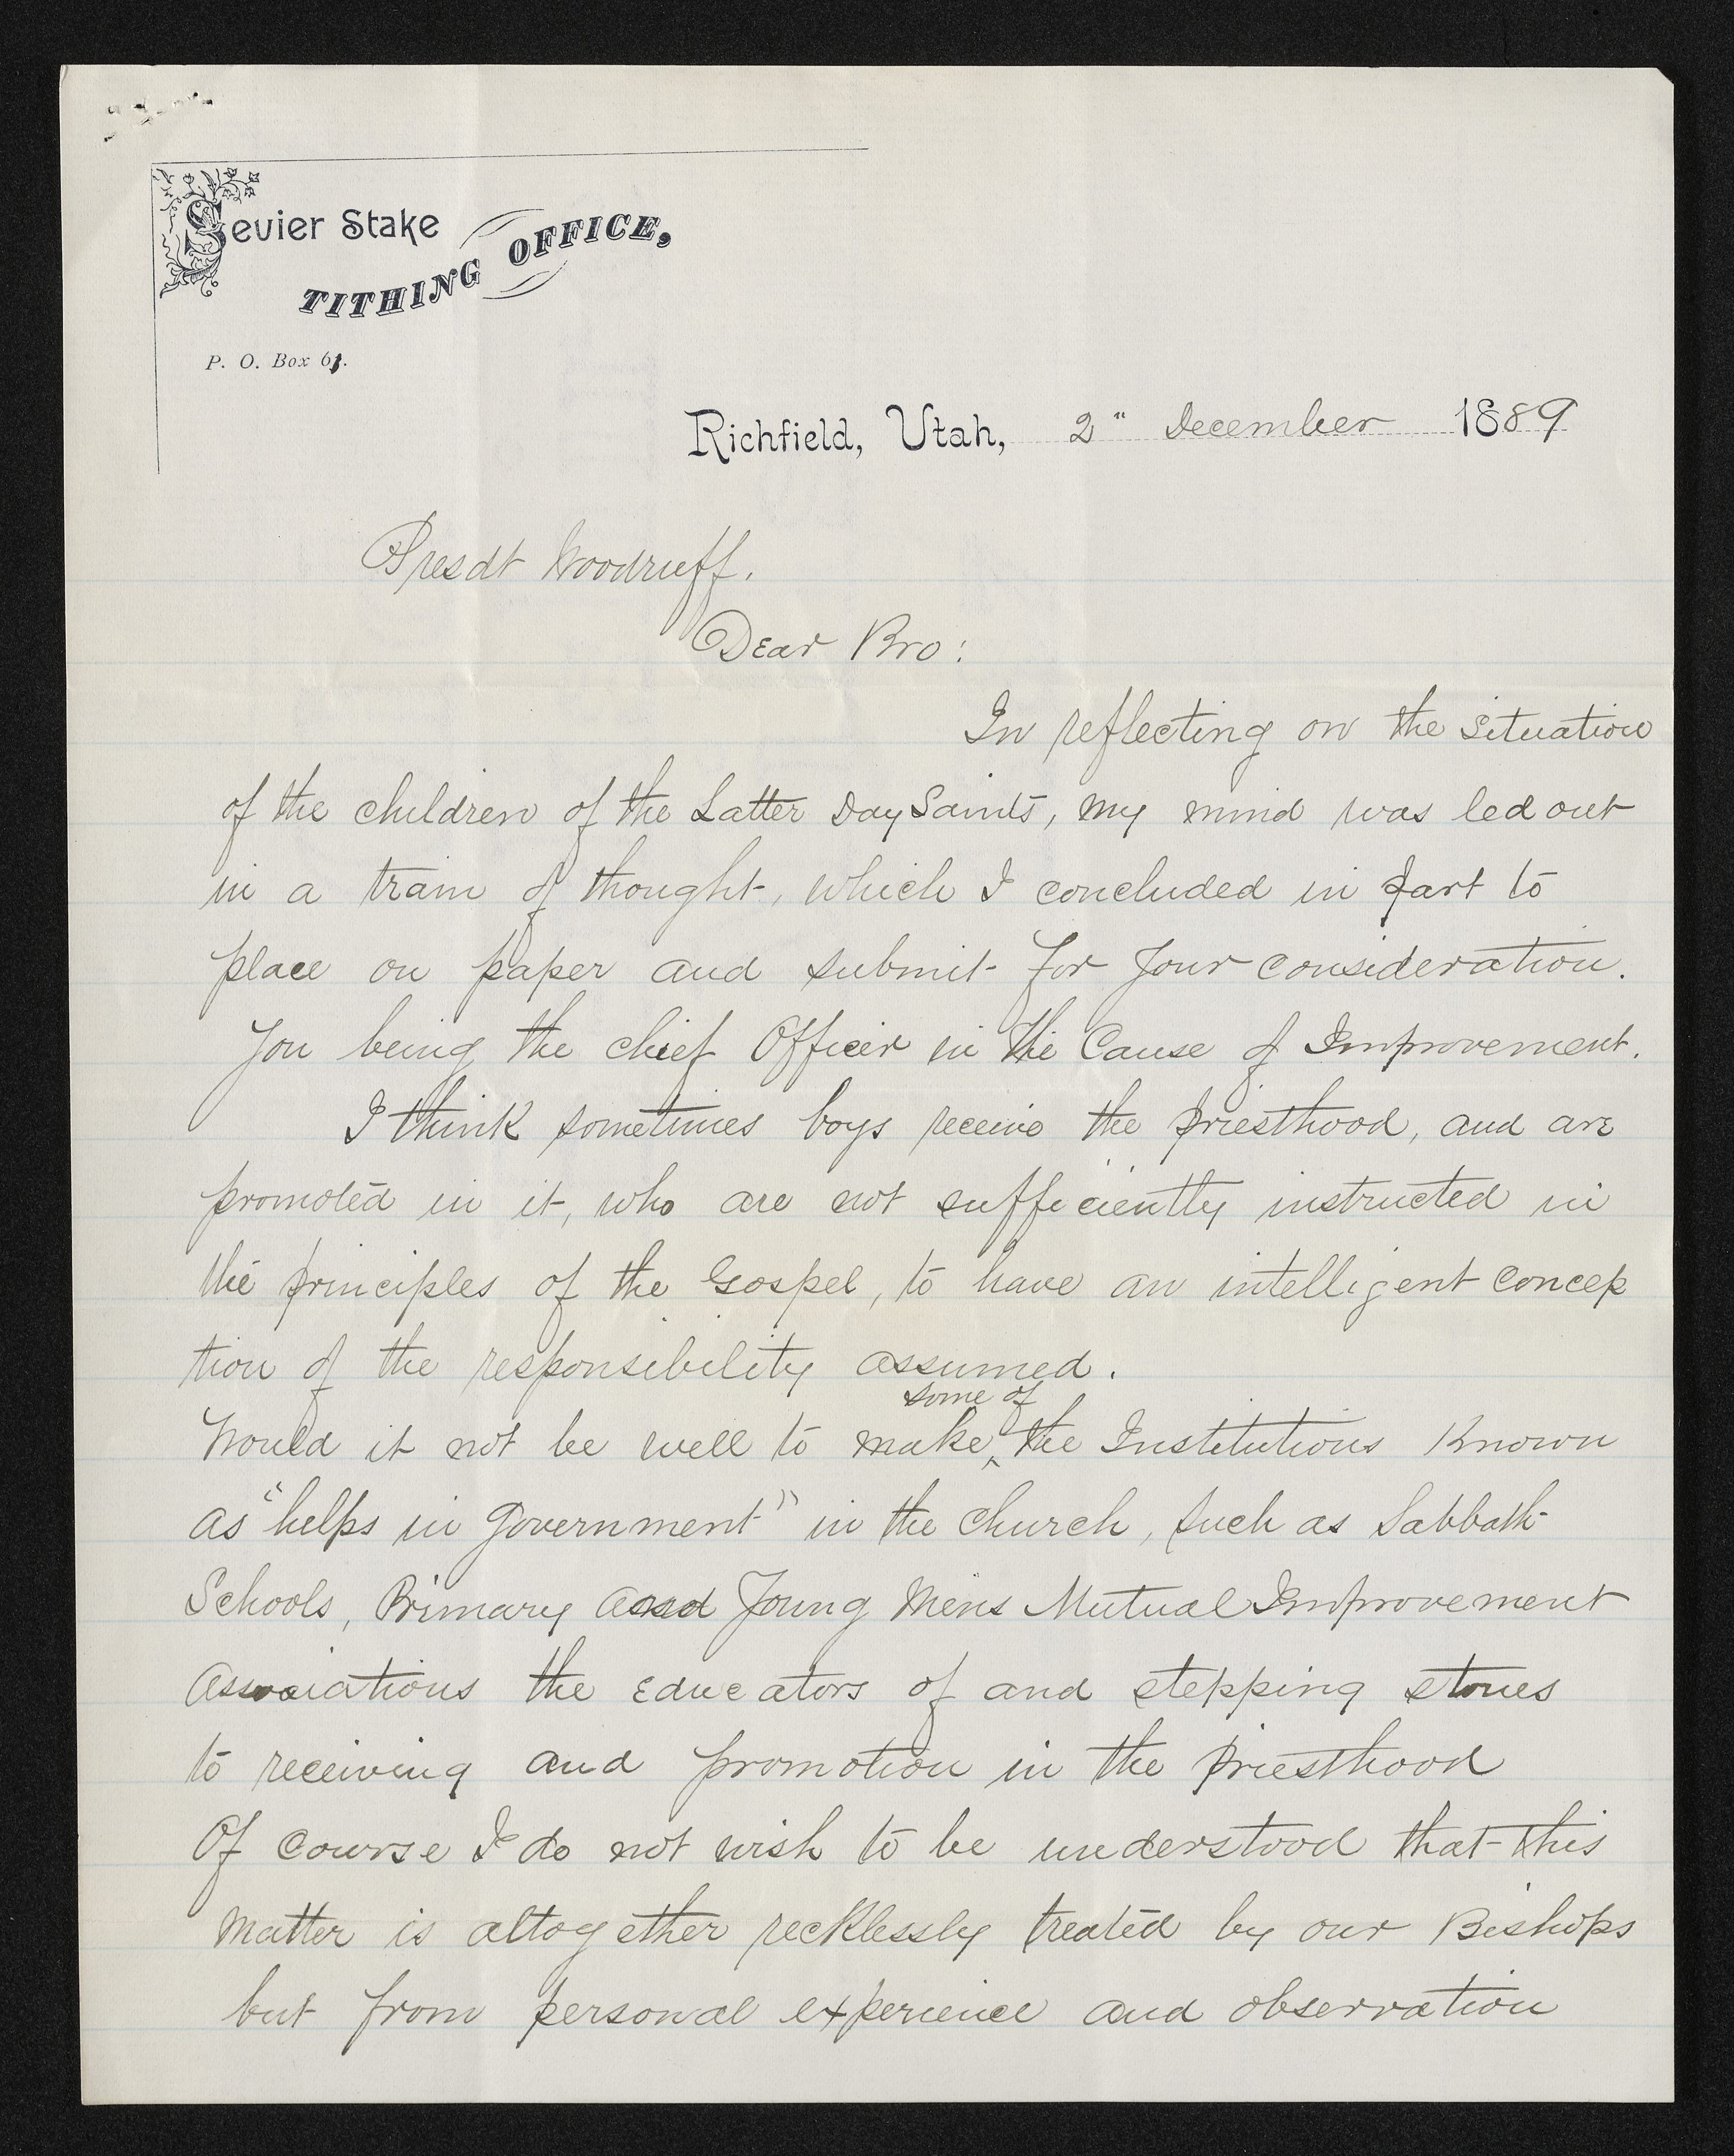 Sevier Stake
TITHING OFFICE,
P. O. Box 61.
Richfield, Utah, 2" December 1889
Presdt Woodruff.
Dear Bro:
In reflecting on the situation
of the children of the Latter Day Saints, my mind was led out
in a train of thought, which I concluded in part to
place on paper and submit for your consideration.
You being the chief Officer in the Cause of Improvement.
I think sometimes boys receive the priesthood, and are
promoted in it, who are not sufficiently instructed in
the principles of the Gospel, to have an intelligent concep
tion of the responsibility assumed.
some of
Would it not be well to make ^ the Institutions Known
as "helps in government" in the church, such as Sabbath
Schools, Primary and Young Mens Mutual Improvement
Associations the educators of and stepping stones
to receiving and promotion in the priesthood
Of course I do not wish to be understood that this
matter is altogether recklessly treated by our Bishops
but from personal experience and observation